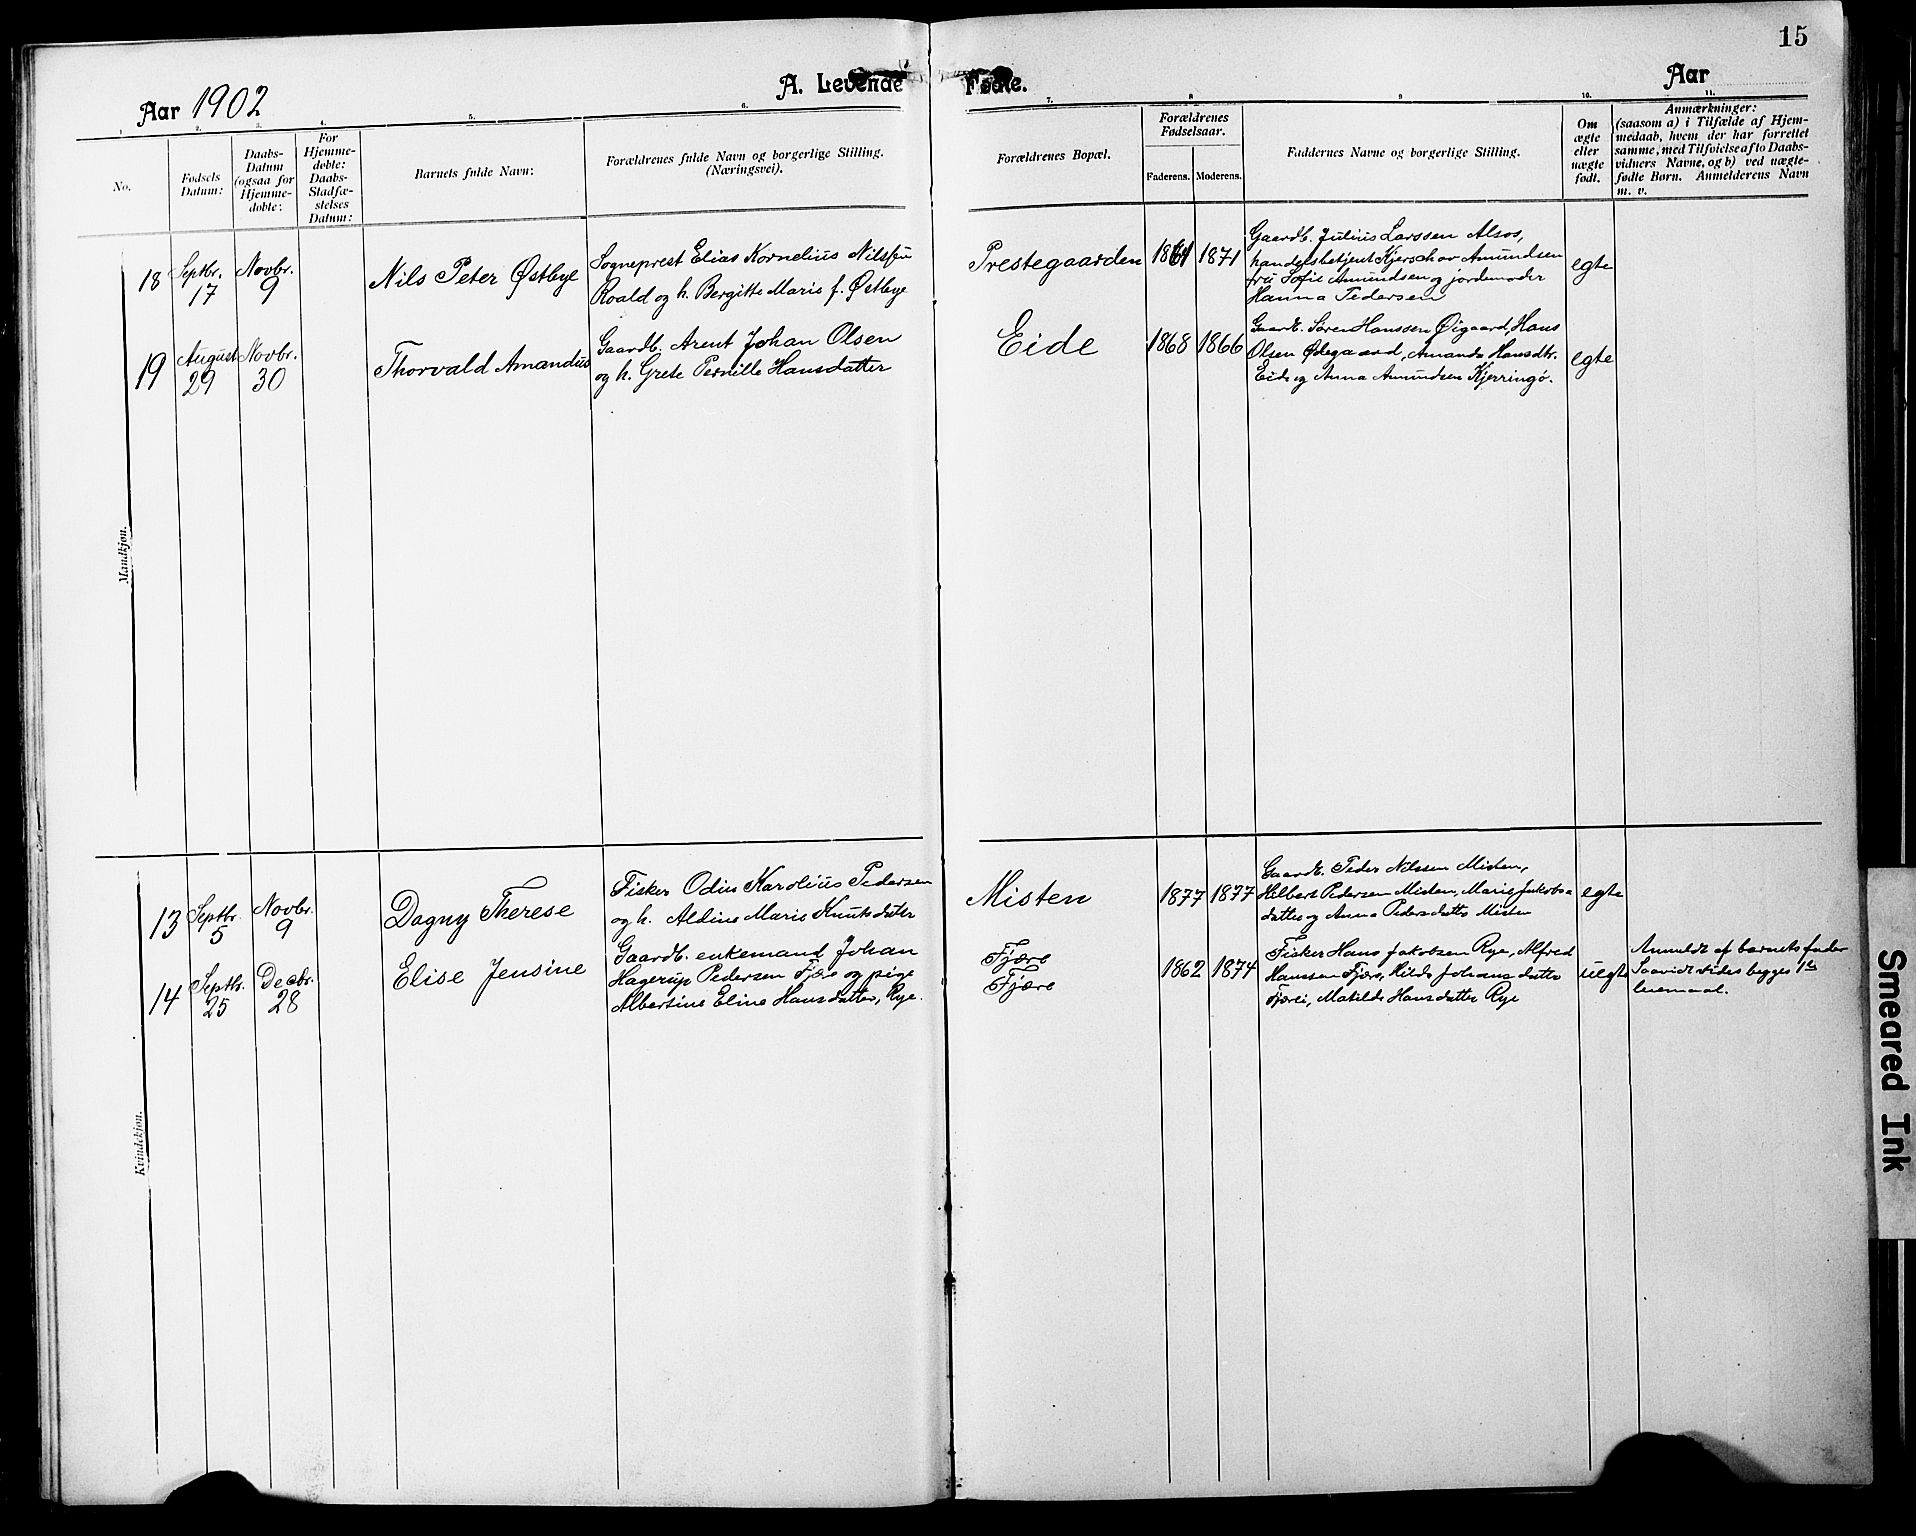 15
Aar 1902
A. Levende Fødte.
Aar
1.
2.
3.
4.
5.
6.
7.
8
9
10.
11.
No.
Fødsels
Datum:
Daabs-
Datum
(ogsaa for
Hjemme-
døbte:
For
Hjemme-
døbte:
Daabs-
Stadfæ-
stelses
Datum:
Barnets fulde Navn:
Forældrenes fulde Navn og borgerlige Stilling.
(Næringsvei).
Forældrenes Bopæl.
Forældrenes
Fødselsaar.
Faderens.
Moderens.
Faddernes Navne og borgerlige Stilling.
Om
ægte
eller
uægte
født.
Anmærkninger:
(saasom a) i Tilfælde af Hjem-
medaab, hvem der har forrettet
samme, med Tilføielse af to Daabs-
vidners Navne, og b) ved uægte-
fødte Børn. Anmelderens Navn
m. v.
Mandkjøn.
18
Septbr.
17
Novbr.
9
Nils Peter Østbye
Sogneprest Elias Kornelius
Roald og h. Bergitte Marie f. Østbye
Prestegaarden
1861
1871
Gaardb. Julius Larssen Alsos,
handelsbetjent Kjerschov Amundsen
fru Sofie Amundsen og jordemoder
Hanna Pedersen
egte
19
August
29
Novbr.
30
Thorvald Amandus
Gaardb. Arent Johan Olsen
og h. Grete Pernille Hansdatter
Eide
1868
1866
Gaardb. Søren Hanssen Øigaard, Hans
Olsen Ødegaard, Amanda Hansdtr.
Eide og Anna Amundsen Kjerringø.
egte
Kvindekjøn.
13
Septbr.
5
Novbr.
9
Dagny Therese
Fisker Odin Karolius Pedersen
og h. Aldine Marie Knutsdatter
Misten
1877
1877
Gaardb. Peder Nilssen Misten,
Hilbert Pedersen Misten, Marie Jakobs
datter og Anna Pedersdatter Misten
egte
14
Septbr.
25
Decbr.
28
Elise Jensine
Gaardb. enkemand Johan
Hagerup Pedersen Fjære og pige
Albertine Eline Hansdatter, Rye.
Fjære
Fjære
1862
1874
Fisker Hans Jakobsen Rye, Alfred
Hanssen Fjære, Hilda Johansdatter
Fjære, Matilde Hansdatter Rye
uegte
Anmeldt af barnets fader
Saavidt vides begges 1ste
leiermaal.
Smeared Ink